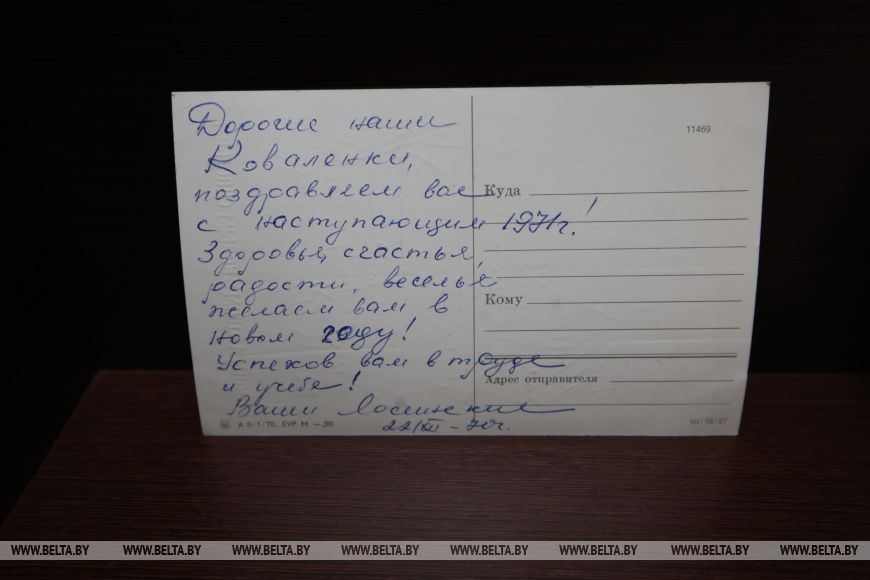 Дорогие наши
Коваленки,
поздравляем вас
с наступающим 1971г.!
Здоровья, счастья,
радости, веселья
желаем вам в
новом году!
Успехов вам в труде
и учебе!
Ваши
22/XII – 70г.
11469
Куда
Кому
Адрес отправителя
A 5/1/70, EVP M. —,20
III/18/27
WWW.BELTA.BY WWW.BELTA.BY WWW.BELTA.BY WWW.BELTA.BY WWW.BELTA.BY WWW.BELTA.BY WWW.BELTA.BY WWW.BELTA.BY